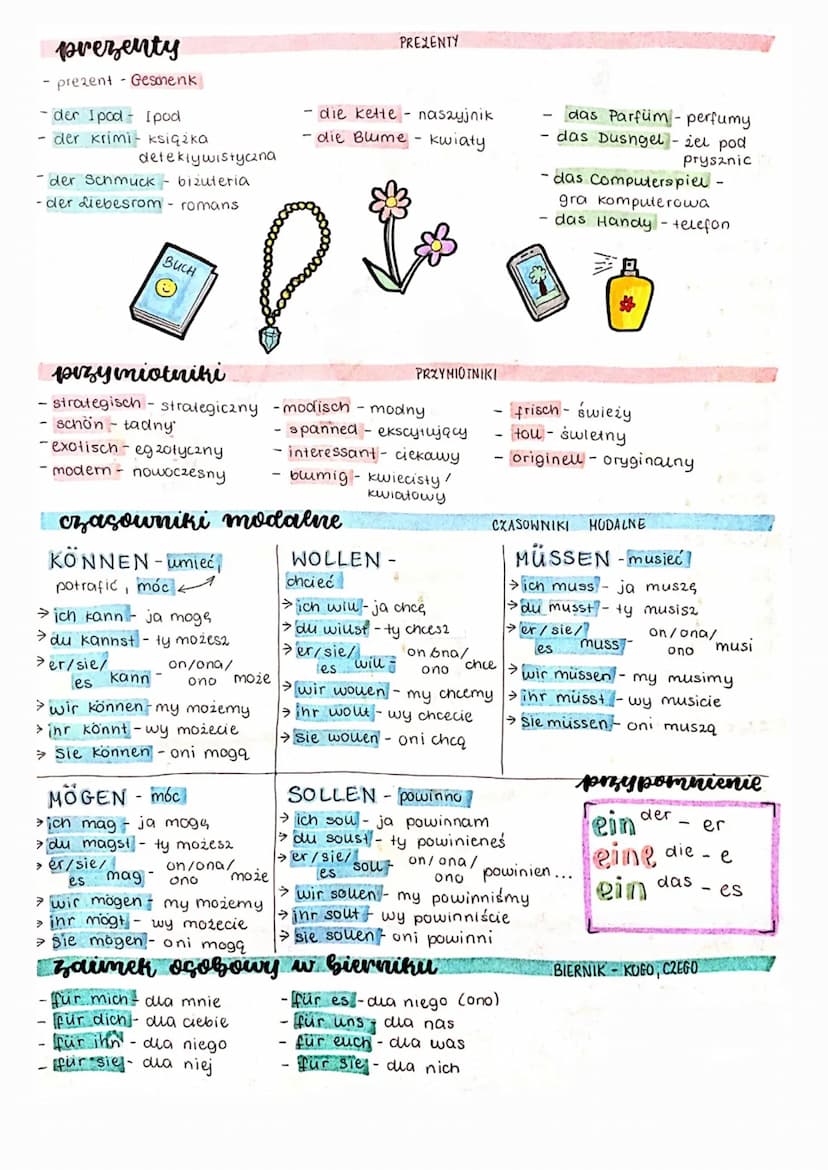 prezenty
PREZENTY
- prezent - Geschenk
- der Ipod - Ipod
- der Krimi - książka
detektywistyczna
- der Schmuck - biżuteria
- der Liebesrom - romans
- die Kette - naszyjnik
- die Blume - kwiaty
- das Parfüm - perfumy
- das Dushgel - żel pod
prysznic
- das Computerspiel -
gra komputerowa
- das Handy - telefon
BUCH
przymiotniki
PRZYMIOTNIKI
- strategisch - strategiczny
- schön - ładny
- exotisch - egzotyczny
- modern - nowoczesny
- modisch - modny
- spanned - ekscytujący
- interessant - ciekawy
- blumig - kwiecisty /
kwiatowy
- frisch - świeży
- toll - świetny
- originell - oryginalny
czasowniki modalne
CZASOWNIKI MODALNE
KÖNNEN - umieć,
potrafić, móc
> ich kann - ja mogę
> du kannst - ty możesz
> er/sie/ on/ona/
es kann - ono może
> wir können - my możemy
> ihr könnt - wy możecie
> sie können - oni mogą
WOLLEN -
chcieć
> ich will - ja chcę
> du willst - ty chcesz
> er/sie/ on ona/
es will - ono chce
> wir wollen - my chcemy
> ihr wollt - wy chcecie
> sie wollen - oni chcą
MÜSSEN - musieć
> ich muss - ja muszę
> du musst - ty musisz
> er/sie/ on/ona/
es muss - ono musi
> wir müssen - my musimy
> ihr müsst - wy musicie
> sie müssen - oni muszą
MÖGEN - móc
> ich mag - ja mogę
> du magst - ty możesz
> er/sie/ on/ona/
es mag - ono może
> wir mögen - my możemy
> ihr mögt - wy możecie
> sie mögen - oni mogą
SOLLEN - powinno
> ich soll - ja powinnam
> du sollst - ty powinieneś
> er/sie/ on/ona/
es soll - ono powinien...
> wir sollen - my powinniśmy
> ihr sollt - wy powinniście
> sie sollen - oni powinni
przypomnienie
ein der - er
eine die - e
ein das - es
zaimek osobowy w bierniku
BIERNIK - KOGO, CZEGO
- für mich - dla mnie
- für dich - dla ciebie
- für ihn - dla niego
- für sie - dla niej
- für es - dla niego (ono)
- für uns - dla nas
- für euch - dla was
- für sie - dla nich